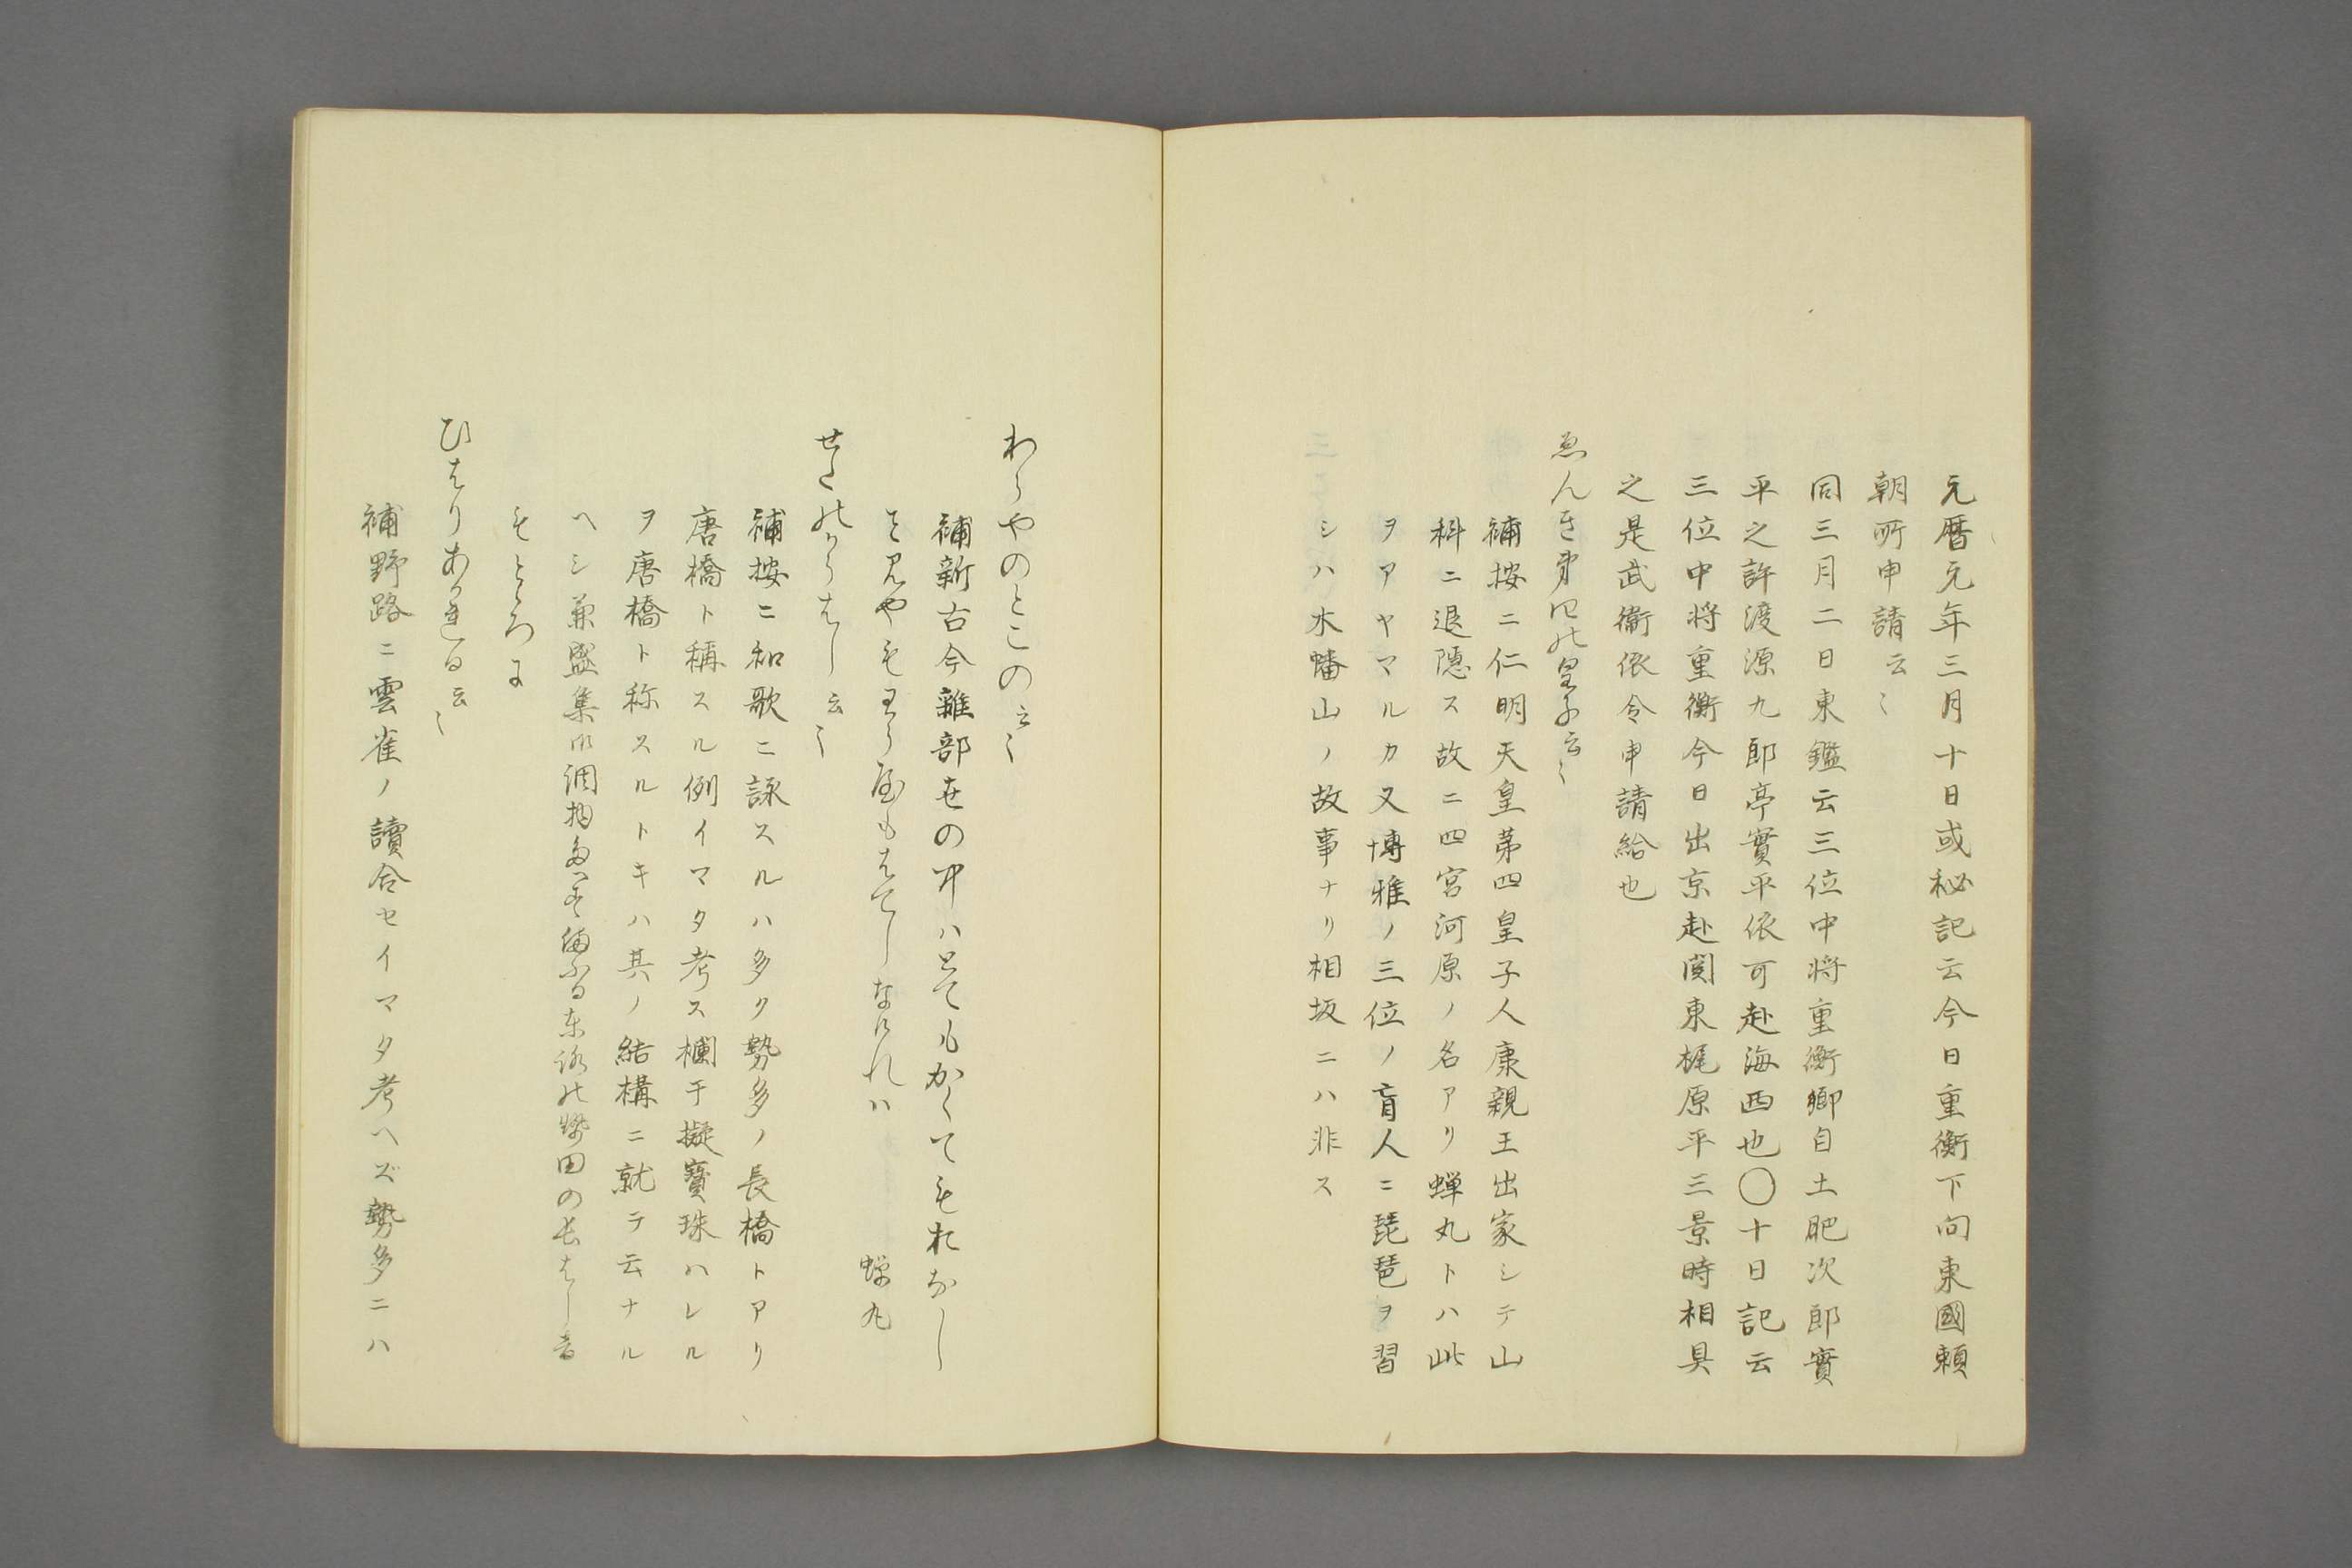 元暦元年三月十日或秘記云今日重衡下向東國頼
朝所申請云〻
同三月二日東鑑云三位中将重衡卿自土肥次郎實
平之許渡源九郎亭實平依可赴海西也〇十日記云
三位中将重衡今日出京赴関東梶原平三景時相具
之是武衞依令申請給也
ゑんき第四の皇子云〻
補按ニ仁明天皇第四皇子人康親王出家シテ山
科ニ退隠ス故ニ四宮河原ノ名アリ蝉丸トハ此
ヲアヤマルカ又博雅ノ三位ノ盲人ニ琵琶ヲ習
シハ木幡山ノ故事ナリ相坂ニハ非ス
わらやのとこの云〻
補新古今雑部世の中ハとてもかくてもおなし
こと宮もわら屋もはてしなけれハ
蝉丸
せたのからはし云〻
補按ニ和歌ニ詠スルハ多ク勢多ノ長橋トアリ
唐橋ト稱スル例イマタ考ス欄干擬寶珠ハレル
ヲ唐橋ト称スルトキハ其ノ結構ニ就テ云ナル
ヘシ兼盛集ニ調物たえす備ふる東路の勢田の長はし音
もとゝろに
ひはりあかれる云〻
補野路ニ雲雀ノ讀合セイマタ考ヘズ勢多ニハ